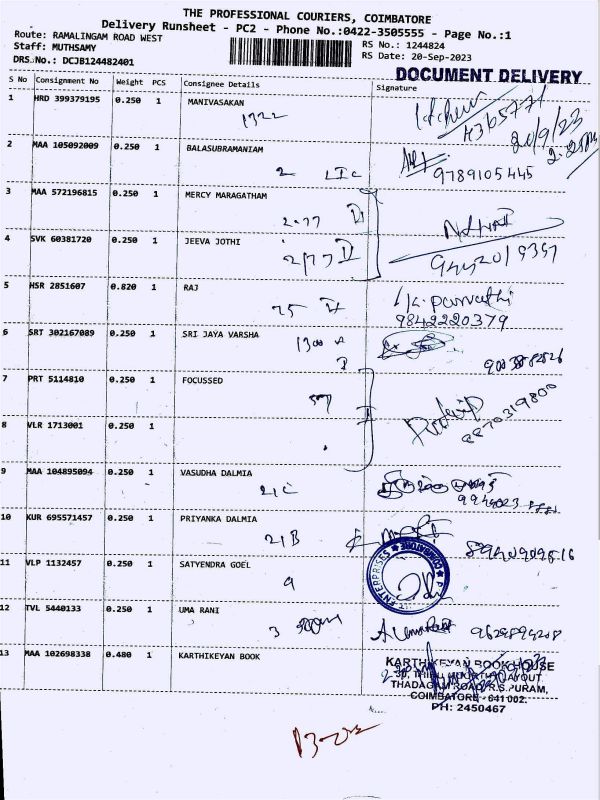 THE PROFESSIONAL COURIERS, COIMBATORE
Delivery Runsheet - PC2 - Phone No.:0422-3505555 - Page No.:1
Route: RAMALINGAM ROAD WEST
RS No.: 1244824
Staff: MUTHSAMY
RS Date: 20-Sep-2023
DRS No.: DCJB124482401
DOCUMENT DELIVERY
S No Consignment No Weight PCS Consignee Details Signature
1 HRD 399379195 0.250 1 MANIVASAKAN
1322
20/9/23
2 MAA 105092009 0.250 1 BALASUBRAMANIAM
9789105445
3 MAA 572196815 0.250 1 MERCY MARAGATHAM
2-77 D
4 SVK 60381720 0.250 1 JEEVA JOTHI
2/77 D
5 HSR 2851607 0.820 1 RAJ
25
L.K. Parvathi
9842220379
6 SRT 302167089 0.250 1 SRI JAYA VARSHA
1300 A
7 PRT 5114810 0.250 1 FOCUSSED
8870319800
8 VLR 1713001 0.250 1
9 MAA 104895094 0.250 1 VASUDHA DALMIA
21 C
10 KUR 695571457 0.250 1 PRIYANKA DALMIA
21B
11 VLP 1132457 0.250 1 SATYENDRA GOEL
9
COIMBATORE
ENTERPRISES
12 TVL 5440133 0.250 1 UMA RANI
3
13 MAA 102698338 0.480 1 KARTHIKEYAN BOOK
KARTHIKEYAN BOOK HOUSE
THADAGAM ROAD, R.S.PURAM,
COIMBATORE - 641 002.
PH: 2450467